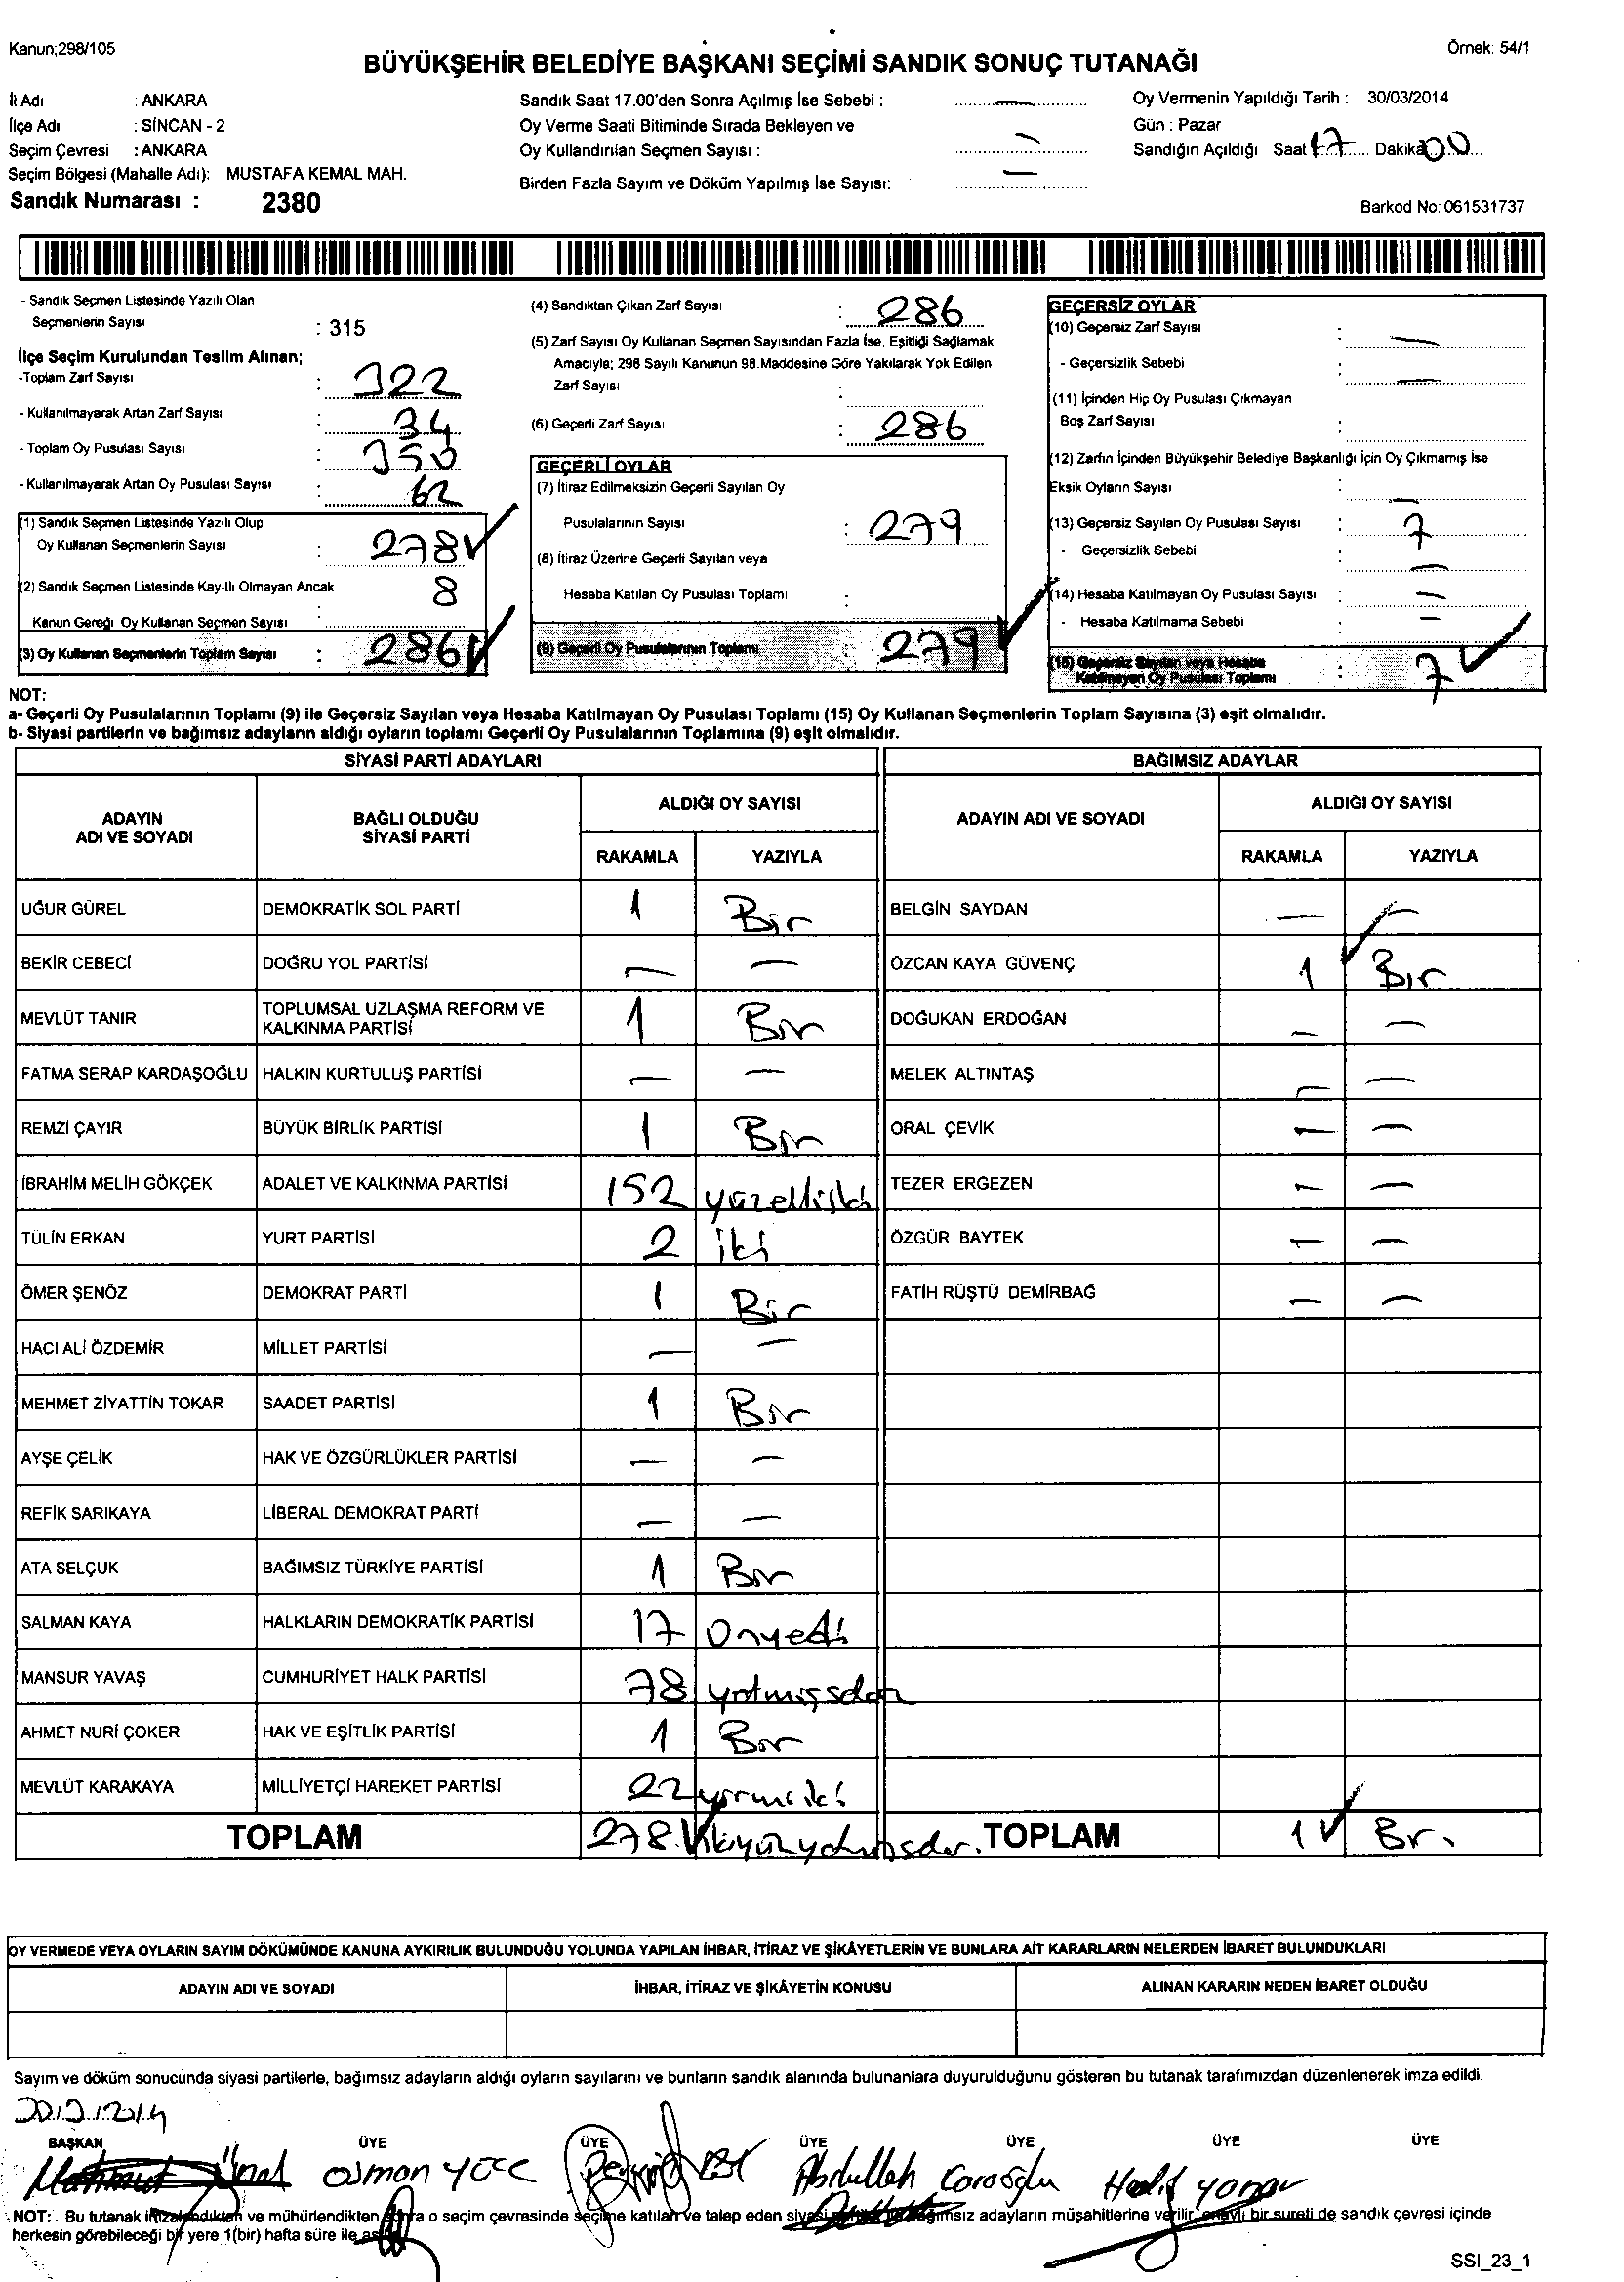 Kanun;298/105
Örnek: 54/1
BÜYÜKŞEHİR BELEDİYE BAŞKANI SEÇİMİ SANDIK SONUÇ TUTANAĞI
İl Adı : ANKARA
İlçe Adı : SİNCAN - 2
Seçim Çevresi : ANKARA
Seçim Bölgesi (Mahalle Adı): MUSTAFA KEMAL MAH.
Sandık Numarası : 2380
Sandık Saat 17.00'den Sonra Açılmış İse Sebebi : —
Oy Verme Saati Bitiminde Sırada Bekleyen ve
Oy Kullandırılan Seçmen Sayısı : —
Birden Fazla Sayım ve Döküm Yapılmış İse Sayısı: —
Oy Vermenin Yapıldığı Tarih : 30/03/2014
Gün : Pazar
Sandığın Açıldığı Saat 17 Dakika 00
Barkod No: 061531737
- Sandık Seçmen Listesinde Yazılı Olan
Seçmenlerin Sayısı : 315
İlçe Seçim Kurulundan Teslim Alınan;
-Toplam Zarf Sayısı : 322
- Kullanılmayarak Artan Zarf Sayısı : 34
- Toplam Oy Pusulası Sayısı : 350
- Kullanılmayarak Artan Oy Pusulası Sayısı : 62
(1) Sandık Seçmen Listesinde Yazılı Olup
Oy Kullanan Seçmenlerin Sayısı : 278
(2) Sandık Seçmen Listesinde Kayıtlı Olmayan Ancak
Kanun Gereği Oy Kullanan Seçmen Sayısı : 8
(3) Oy Kullanan Seçmenlerin Toplam Sayısı : 286
(4) Sandıktan Çıkan Zarf Sayısı : 286
(5) Zarf Sayısı Oy Kullanan Seçmen Sayısından Fazla İse, Eşitliği Sağlamak
Amacıyla; 298 Sayılı Kanunun 98.Maddesine Göre Yakılarak Yok Edilen
Zarf Sayısı :
(6) Geçerli Zarf Sayısı : 286
GEÇERLİ OYLAR
(7) İtiraz Edilmeksizin Geçerli Sayılan Oy
Pusulalarının Sayısı : 279
(8) İtiraz Üzerine Geçerli Sayılan veya
Hesaba Katılan Oy Pusulası Toplamı :
(9) Geçerli Oy Pusulalarının Toplamı 279
GEÇERSİZ OYLAR
(10) Geçersiz Zarf Sayısı : —
- Geçersizlik Sebebi : —
(11) İçinden Hiç Oy Pusulası Çıkmayan
Boş Zarf Sayısı :
(12) Zarfın İçinden Büyükşehir Belediye Başkanlığı İçin Oy Çıkmamış İse
Eksik Oyların Sayısı : —
(13) Geçersiz Sayılan Oy Pusulası Sayısı : 7
- Geçersizlik Sebebi : —
(14) Hesaba Katılmayan Oy Pusulası Sayısı : —
- Hesaba Katılmama Sebebi : —
(15) Geçersiz Sayılan veya Hesaba
Katılmayan Oy Pusulası Toplamı : 7
NOT:
a- Geçerli Oy Pusulalarının Toplamı (9) ile Geçersiz Sayılan veya Hesaba Katılmayan Oy Pusulası Toplamı (15) Oy Kullanan Seçmenlerin Toplam Sayısına (3) eşit olmalıdır.
b- Siyasi partilerin ve bağımsız adayların aldığı oyların toplamı Geçerli Oy Pusulalarının Toplamına (9) eşit olmalıdır.
SİYASİ PARTİ ADAYLARI
ADAYIN ADI VE SOYADI BAĞLI OLDUĞU SİYASİ PARTİ ALDIĞI OY SAYISI
RAKAMLA YAZIYLA
UĞUR GÜREL DEMOKRATİK SOL PARTİ 1 Bir
BEKİR CEBECİ DOĞRU YOL PARTİSİ — —
MEVLÜT TANIR TOPLUMSAL UZLAŞMA REFORM VE KALKINMA PARTİSİ 1 Bir
FATMA SERAP KARDAŞOĞLU HALKIN KURTULUŞ PARTİSİ — —
REMZİ ÇAYIR BÜYÜK BİRLİK PARTİSİ 1 Bir
İBRAHİM MELİH GÖKÇEK ADALET VE KALKINMA PARTİSİ 152 yüzelliiki
TÜLİN ERKAN YURT PARTİSİ 2 iki
ÖMER ŞENÖZ DEMOKRAT PARTİ 1 Bir
HACI ALİ ÖZDEMİR MİLLET PARTİSİ — —
MEHMET ZİYATTİN TOKAR SAADET PARTİSİ 1 Bir
AYŞE ÇELİK HAK VE ÖZGÜRLÜKLER PARTİSİ — —
REFİK SARIKAYA LİBERAL DEMOKRAT PARTİ — —
ATA SELÇUK BAĞIMSIZ TÜRKİYE PARTİSİ 1 Bir
SALMAN KAYA HALKLARIN DEMOKRATİK PARTİSİ 17 Onyedi
MANSUR YAVAŞ CUMHURİYET HALK PARTİSİ 78 yetmişsekiz
AHMET NURİ ÇOKER HAK VE EŞİTLİK PARTİSİ 1 Bir
MEVLÜT KARAKAYA MİLLİYETÇİ HAREKET PARTİSİ 22 yirmiiki
TOPLAM 278
BAĞIMSIZ ADAYLAR
ADAYIN ADI VE SOYADI ALDIĞI OY SAYISI
RAKAMLA YAZIYLA
BELGİN SAYDAN — —
ÖZCAN KAYA GÜVENÇ 1 Bir
DOĞUKAN ERDOĞAN — —
MELEK ALTINTAŞ — —
ORAL ÇEVİK — —
TEZER ERGEZEN — —
ÖZGÜR BAYTEK — —
FATİH RÜŞTÜ DEMİRBAĞ — —
TOPLAM 1 Bir
OY VERMEDE VEYA OYLARIN SAYIM DÖKÜMÜNDE KANUNA AYKIRILIK BULUNDUĞU YOLUNDA YAPILAN İHBAR, İTİRAZ VE ŞİKÂYETLERİN VE BUNLARA AİT KARARLARIN NELERDEN İBARET BULUNDUKLARI
ADAYIN ADI VE SOYADI İHBAR, İTİRAZ VE ŞİKÂYETİN KONUSU ALINAN KARARIN NEDEN İBARET OLDUĞU
Sayım ve döküm sonucunda siyasi partilerle, bağımsız adayların aldığı oyların sayılarını ve bunların sandık alanında bulunanlara duyurulduğunu gösteren bu tutanak tarafımızdan düzenlenerek imza edildi.
30/3/2014
BAŞKAN ÜYE ÜYE ÜYE ÜYE ÜYE ÜYE
Mahmut Ünal Osman Abdullah Karaoğlu
NOT: Bu tutanak imzalandıktan ve mühürlendikten sonra o seçim çevresinde seçime katılan ve talep eden siyasi bağımsız adayların müşahitlerine verilir, onaylı bir sureti de sandık çevresi içinde
herkesin görebileceği bir yere 1(bir) hafta süre ile
SSI_23_1